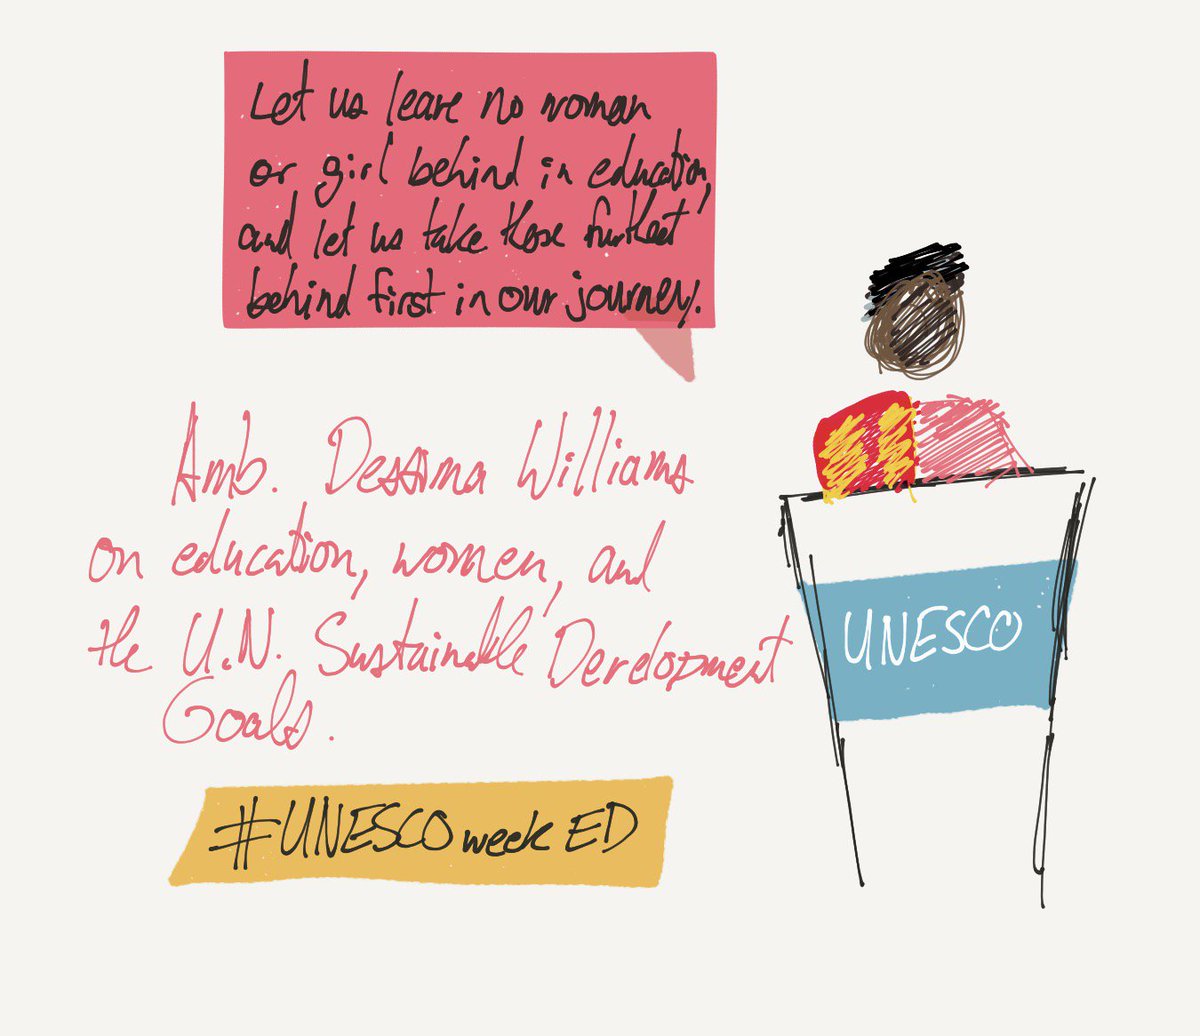 Let us leave no woman
or girl behind in education,
and let us take those furthest
behind first in our journey.
Amb. Dessima Williams
on education, women, and
the U.N. Sustainable Development
Goals.
UNESCO
#UNESCO week ED